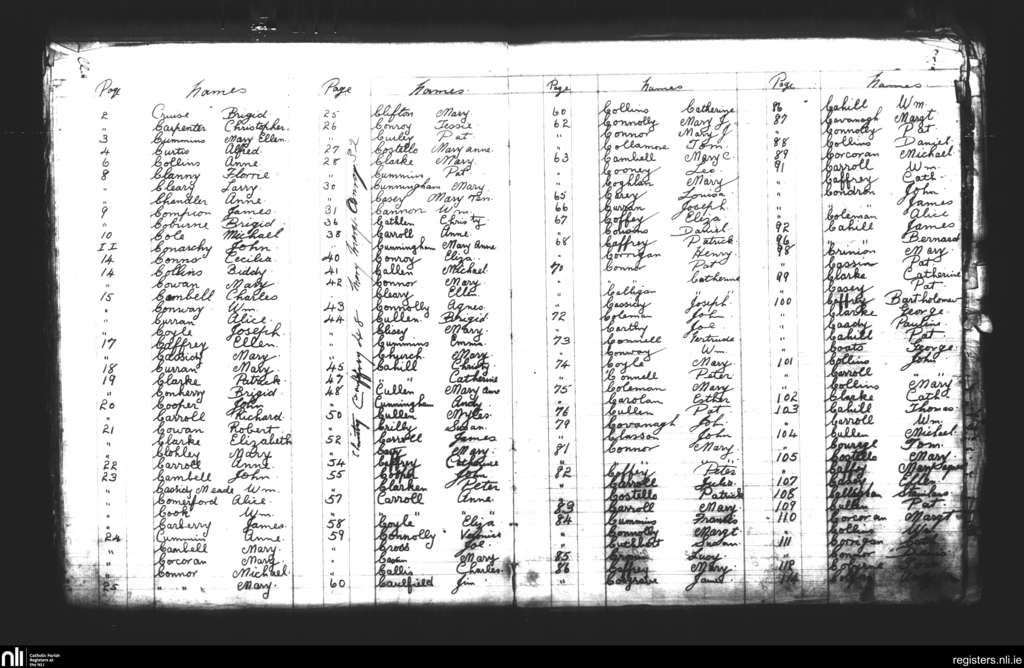 Page Names
2 Cruise Brigid
" Carpenter Christopher.
3 Cummins Mary Ellen
4 Curtis Alfred.
6 Collins Anne.
8 Clanny Florrie
" Cleary Larry.
" Chandler Anne.
9 Compion James.
" Coburne Brigid
10 Cole Michael
11 Conarchy John
14 Conno Cecilia
14 Collins Biddy
" Cowan Mary
15 Cambell Charles
" Conway Wm.
" Curran Alice.
" Coyle Joseph.
17 Caffrey Ellen.
" Cassidy Mary
18 Curran Mary
19 Clarke Patrick.
" Brigid
20 Cooper John
" Carroll Richard
21 Cowan Robert
" Clarke Elizabeth
" Mary
22 Carroll Anne.
23 Cambell John
" Cassidy Meade Wm.
" Comerford Alice.
" Cook Wm.
" Carberry James.
24 Cummins Anne.
" Cambell Mary.
" Corcoran Mary
" Connor Michael.
25 " " Mary.
Page Names
25 Clifton Mary
26 Conroy Jessie
" Curley Pat
27 Costello Mary anne.
28 Clarke Mary.
" Cummins Pat
30 Cunningham Mary.
" Casey Mary
31 Cannon Wm.
36 Christy
38 Carroll Anne
" Cunningham Mary Anne
40 Conroy Eliza
41 Cullen Michael
42 Connor Mary
" Cleary Ellen
43 Connolly Agnes.
44 Cullen Brigid
" Mary.
" Cummins Emma
" Church Mary
45 Cahill Christy
47 " Catherine
48 Cullen Mary Ann
" Cunningham Andy
50 Cullen Myles
" Susan.
52 Carroll James
" Mary.
54 Caffrey
55 Cooper
" Peter
57 Carroll Anne.
" " "
58 Coyle Eliza
59 Connolly
" Cross Joe
" Mary
" Charles
60 Caulfield Jim
Christy Caffrey 48
Page Names
60 Collins Catherine
62 Connolly Mary J.
" Connor Mary J
" Collamore Tom.
63 Cambell Mary C.
" Cooney Leo
" Coghlan Mary
65 Carey Louisa
66 Curran Joseph
67 Coffey Eliza
" Cousins Daniel.
68 Caffrey Patrick.
" Corrigan Henry
70 Connor Pat
" " Catherine
" Culligan "
" Cassidy Joseph
72 Coleman Joh
" Carthy Joe.
73 Connell Gertrude
" Conway Wm.
74 Coyle Mary
" Connell Peter
75 Coleman Mary
" Carolan Esther
76 Cullen Pat
79 Cavanagh Joh.
" Classon John
81 Connor Mary
" " "
82 Caffrey Peter
" Carroll Julia.
" Costello Patrick
83 Carroll Mary.
84 Cummins Francis
" Connolly Margt
" Susan.
85 Lucy
86 Caffrey Mary
" Cosgrave James
Page Names
86 Cahill Wm.
87 Cavanagh Margt
" Connolly Pat
88 Collins Daniel
89 Corcoran Michael
91 Carroll Wm.
" Caffrey Cath.
" Condron John
" " James
" Coleman Alice
92 Cahill James
96 " Bernard
98 Crinion Mary.
" Cassin Pat
99 Clarke Catherine
" Casey Pat
100 Caffrey Bartholomew
" Clarke George.
" Cassidy Pauline
" Cahill Pat
" Coats George.
101 Collins John
" Carroll "
" Collins Mary
102 Clarke Cath
103 Cahill Thomas
" Carroll Wm
104 Cullen Michael
" Tom.
105 Costello Mary
" Caffrey
107 Casey Ellen
108 Callaghan
109 Cullen Pat
110 Corcoran Margt
" Collins Wm
111 Corrigan
" Connor
112
nli Catholic Parish Registers at the NLI
registers.nli.ie